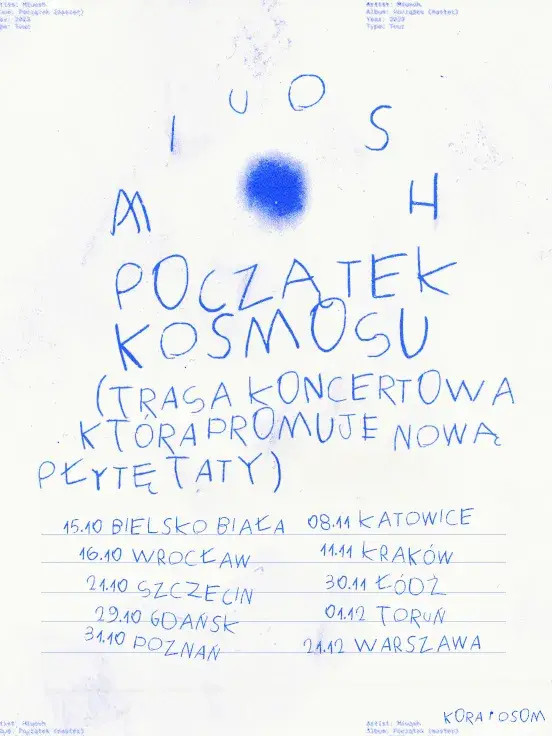 Artist: Miuosh
Album: Początek (master)
Year: 2023
Type: Tour
MIUOSH
POCZĄTEK
KOSMOSU
(TRASA KONCERTOWA
KTÓRA PROMUJE NOWĄ
PŁYTĘ TATY)
15.10 BIELSKO BIAŁA
16.10 WROCŁAW
21.10 SZCZECIN
29.10 GDAŃSK
31.10 POZNAŃ
08.11 KATOWICE
11.11 KRAKÓW
30.11 ŁÓDŹ
01.12 TORUŃ
21.12 WARSZAWA
KORA I OSOM
Artist: Miuosh
Album: Początek (master)